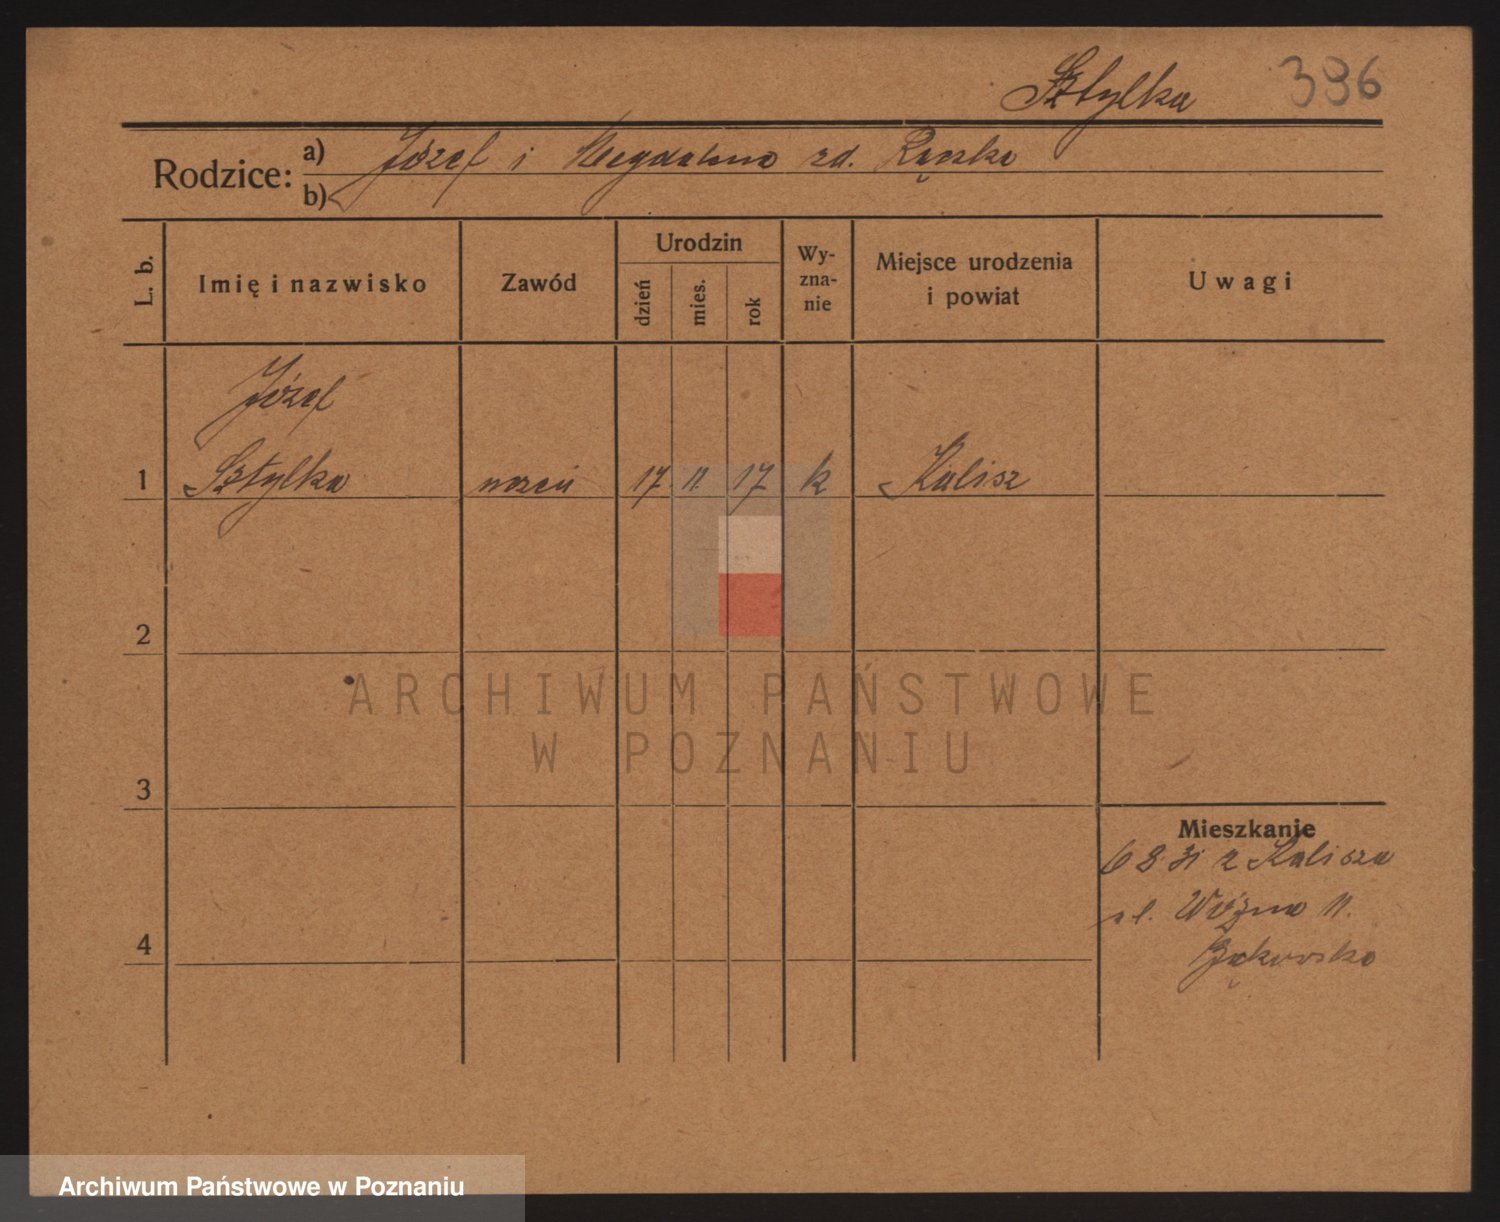 Sztylka 396
Rodzice: a) Józef i Magdalena zd. Rączka
b)
L. b. Imię i nazwisko Zawód Urodzin dzień mies. rok Wyznanie Miejsce urodzenia i powiat Uwagi
Józef
1 Sztylka uczeń 17 11. 17 k Kalisz
2
ARCHIWUM PAŃSTWOWE
W POZNANIU
3
Mieszkanie
6 8 31 z Kalisza
ul. Woźna 11.
4
Archiwum Państwowe w Poznaniu